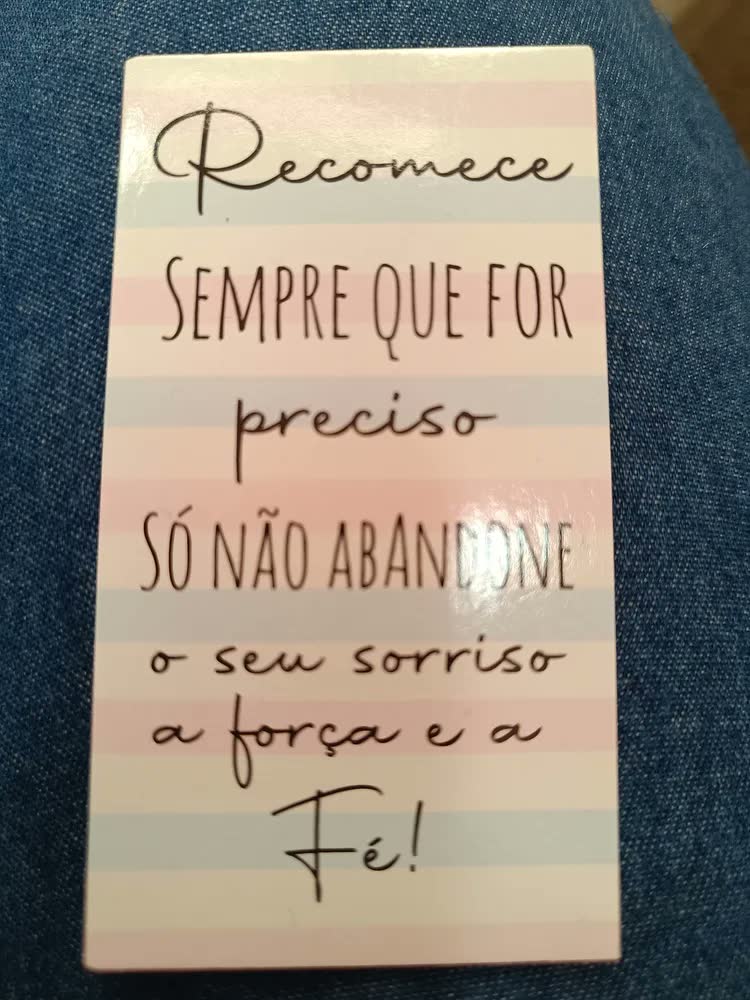 Recomece
SEMPRE QUE FOR
preciso
SÓ NÃO ABANDONE
o seu sorriso
a força e a
Fé!